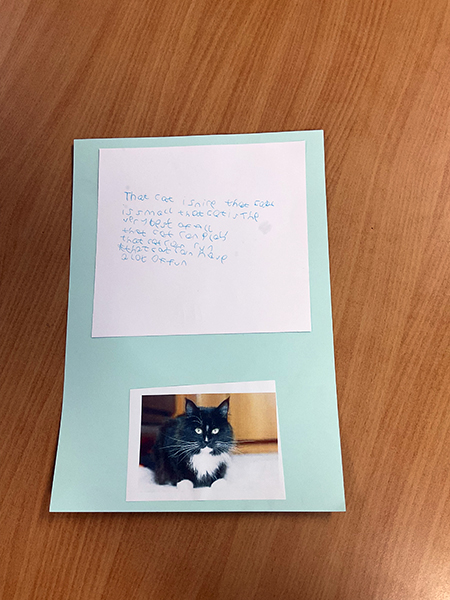 That cat is nice that cat
is small that cat is the
very best of all
that cat can play
that cat can run
that cat can have
a lot of fun